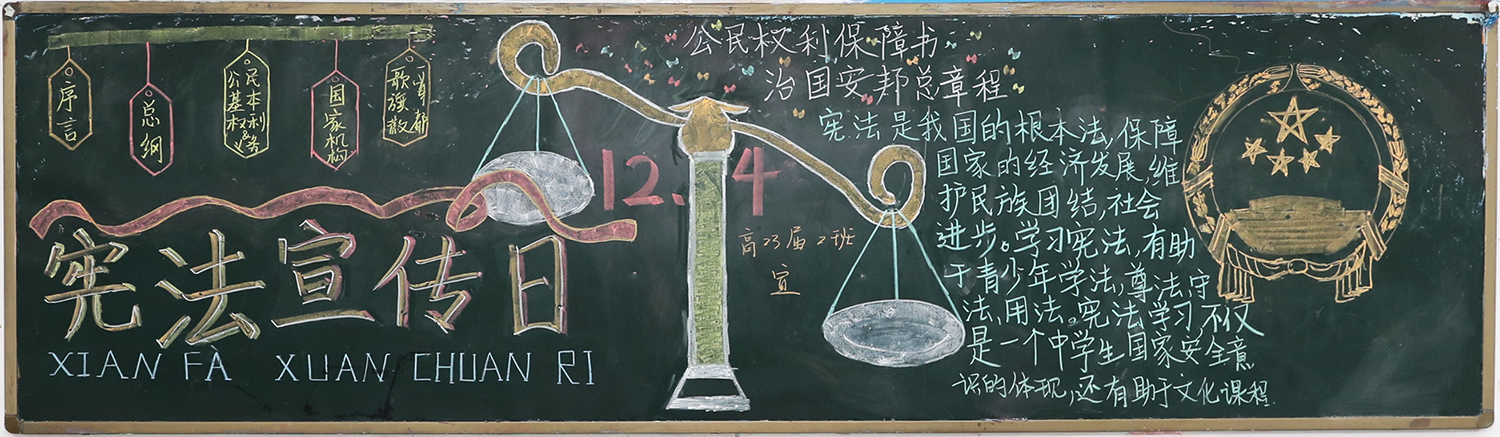 序言
总纲
公民
基本
权利
&
义务
国家机构
歌旗徽
首都
公民权利保障书
治国安邦总章程
12.4
宪法宣传日
XIAN FA XUAN CHUAN RI
高23届2班
宣
宪法是我国的根本法,保障
国家的经济发展,维
护民族团结,社会
进步。学习宪法,有助
于青少年学法,尊法,守
法,用法。宪法学习,不仅
是一个中学生国家安全意
识的体现,还有助于文化课程.